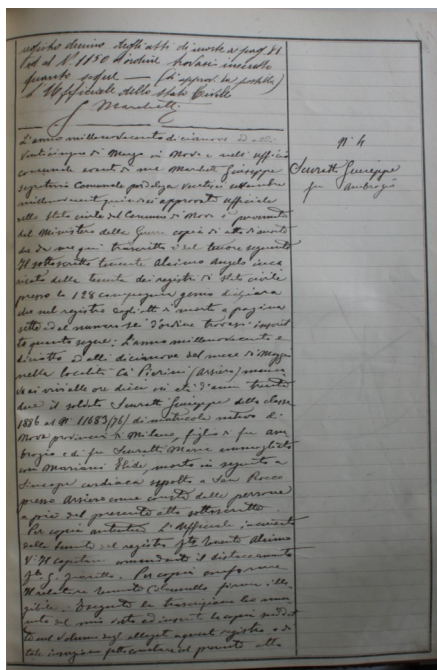 registro decimo degli atti di morte a pag. 81
ed al N° 1150 d'ordine trovasi inserto
quanto segue — (Si approva la postilla)
L'Ufficiale dello Stato Civile
G Marchetti
L'anno millenovecentodicianove ed alli
venticinque di Marzo in Nova e nell'ufficio
comunale avanti di me Marchetti Giuseppe
segretario Comunale per delega ventisei settembre
millenovecento approvata ufficiale
dello stato civile del Comune di Nova è pervenuta
dal Ministero della Guerra copia di atto di morte
che da me qui trascritto è del tenore seguente
Il sottoscritto tenente Alaimo Angelo inca
ricato della tenuta dei registri di stato civile
presso la 128 compagnia genio dichiara
che nel registro degli atti di morte a pagina
sette ed al numero sei d'ordine trovasi inscrit
to quanto segue: L'anno millenovecento e
diciotto ed alli dicianove del mese di Maggio
nella località Ca' Piorini (Arsiero) manca
va ai vivi alle ore dieci in età d'anni trenta
due il soldato Scuratti Giuseppe della classe
1886 al N. 11683(76) di matricola nativo di
Nova provincia di Milano, figlio di fu Am
brogio e di fu Scuratti Maria ammogliato
con Mariani Elide, morto in seguito a
Sincope cardiaca sepolto a San Rocco
presso Arsiero come consta delle persone
a piè del presente atto sottoscritte.
Per copia autentica L'ufficiale incaricato
della tenuta del registro f.to tenente Alaimo
V° Il capitano comandante il distaccamento
f.to G. Per copia conforme
Il relatore tenente Colonnello firma ille
gibile. Eseguita la trascrizione ho mu
nito del mio visto ed inserito la copia suddet
ta nel volume degli allegati a questo registro e di
tale inserzione fatto constare nel presente atto
N° 4
Scuratti Giuseppe
fu Ambrogio